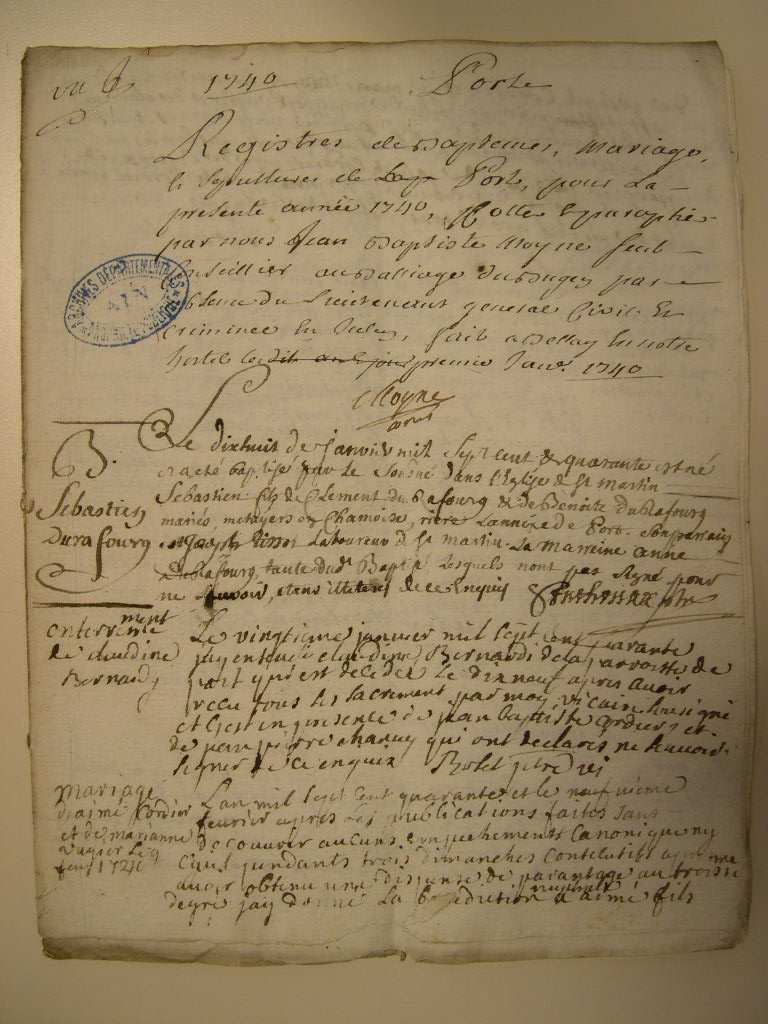 1740 Porte
Registres de Baptemes, Mariage,
& Sepultures de Porte, pour La
presente année 1740, Cotté & paraphé
par nous Jean Baptiste Moyne seul
Conseillier au Balliage du Bugey par
absence du Lieutenant general Civil Et
Criminel En Icelui, fait a Belley En notre
hostel le premier Janv. 1740
Moyne
ARCHIVES DÉPARTEMENTALES
AIN
B.
Sebastien
Durafourg
Le dixhuit de Janvier mil Sept cent & quarante est né
et a eté baptisé par le Sousné dans l'Eglise de St Martin
Sebastien fils de Clement du Rafourg & de Benoite du Rafourg
mariés, metayers en Chamoise, rière L'annexe de Port. Son parrain
Joseph Tissot Laboureur de St martin. La Marreine anne
DuRafourg, tante dud. Baptisé Lesquels n'ont pas signé pour
ne Scavoir, etans illiteres de ce Enquis
enterrement
de claudine
Bernard
Le vingtieme janvier mil sept cent quarante
jay enterré claudine Bernard de la parroisse de
port qui est decedée le dix neuf apres avoir
recu tous les sacrement par moy vicaire sousigné
et c'est en presence de jean baptiste Cordier et
de jean pierre qui ont declarés ne scavoir
signer de ce enquis Bolet ptre vi
Mariage
d'aimé Cordier
et de marianne
le 9
fevr 1740
L'an mil sept cent quarante et le neufvieme
fevrier apres les publications faites sans
decouvrir aucuns empechements Canonique ny
Civil pendants trois dimanches consecutifs apres
avoir obtenu une dispense de parantage au troisie
degre jay donné La benediction nuptiale a aimé fils